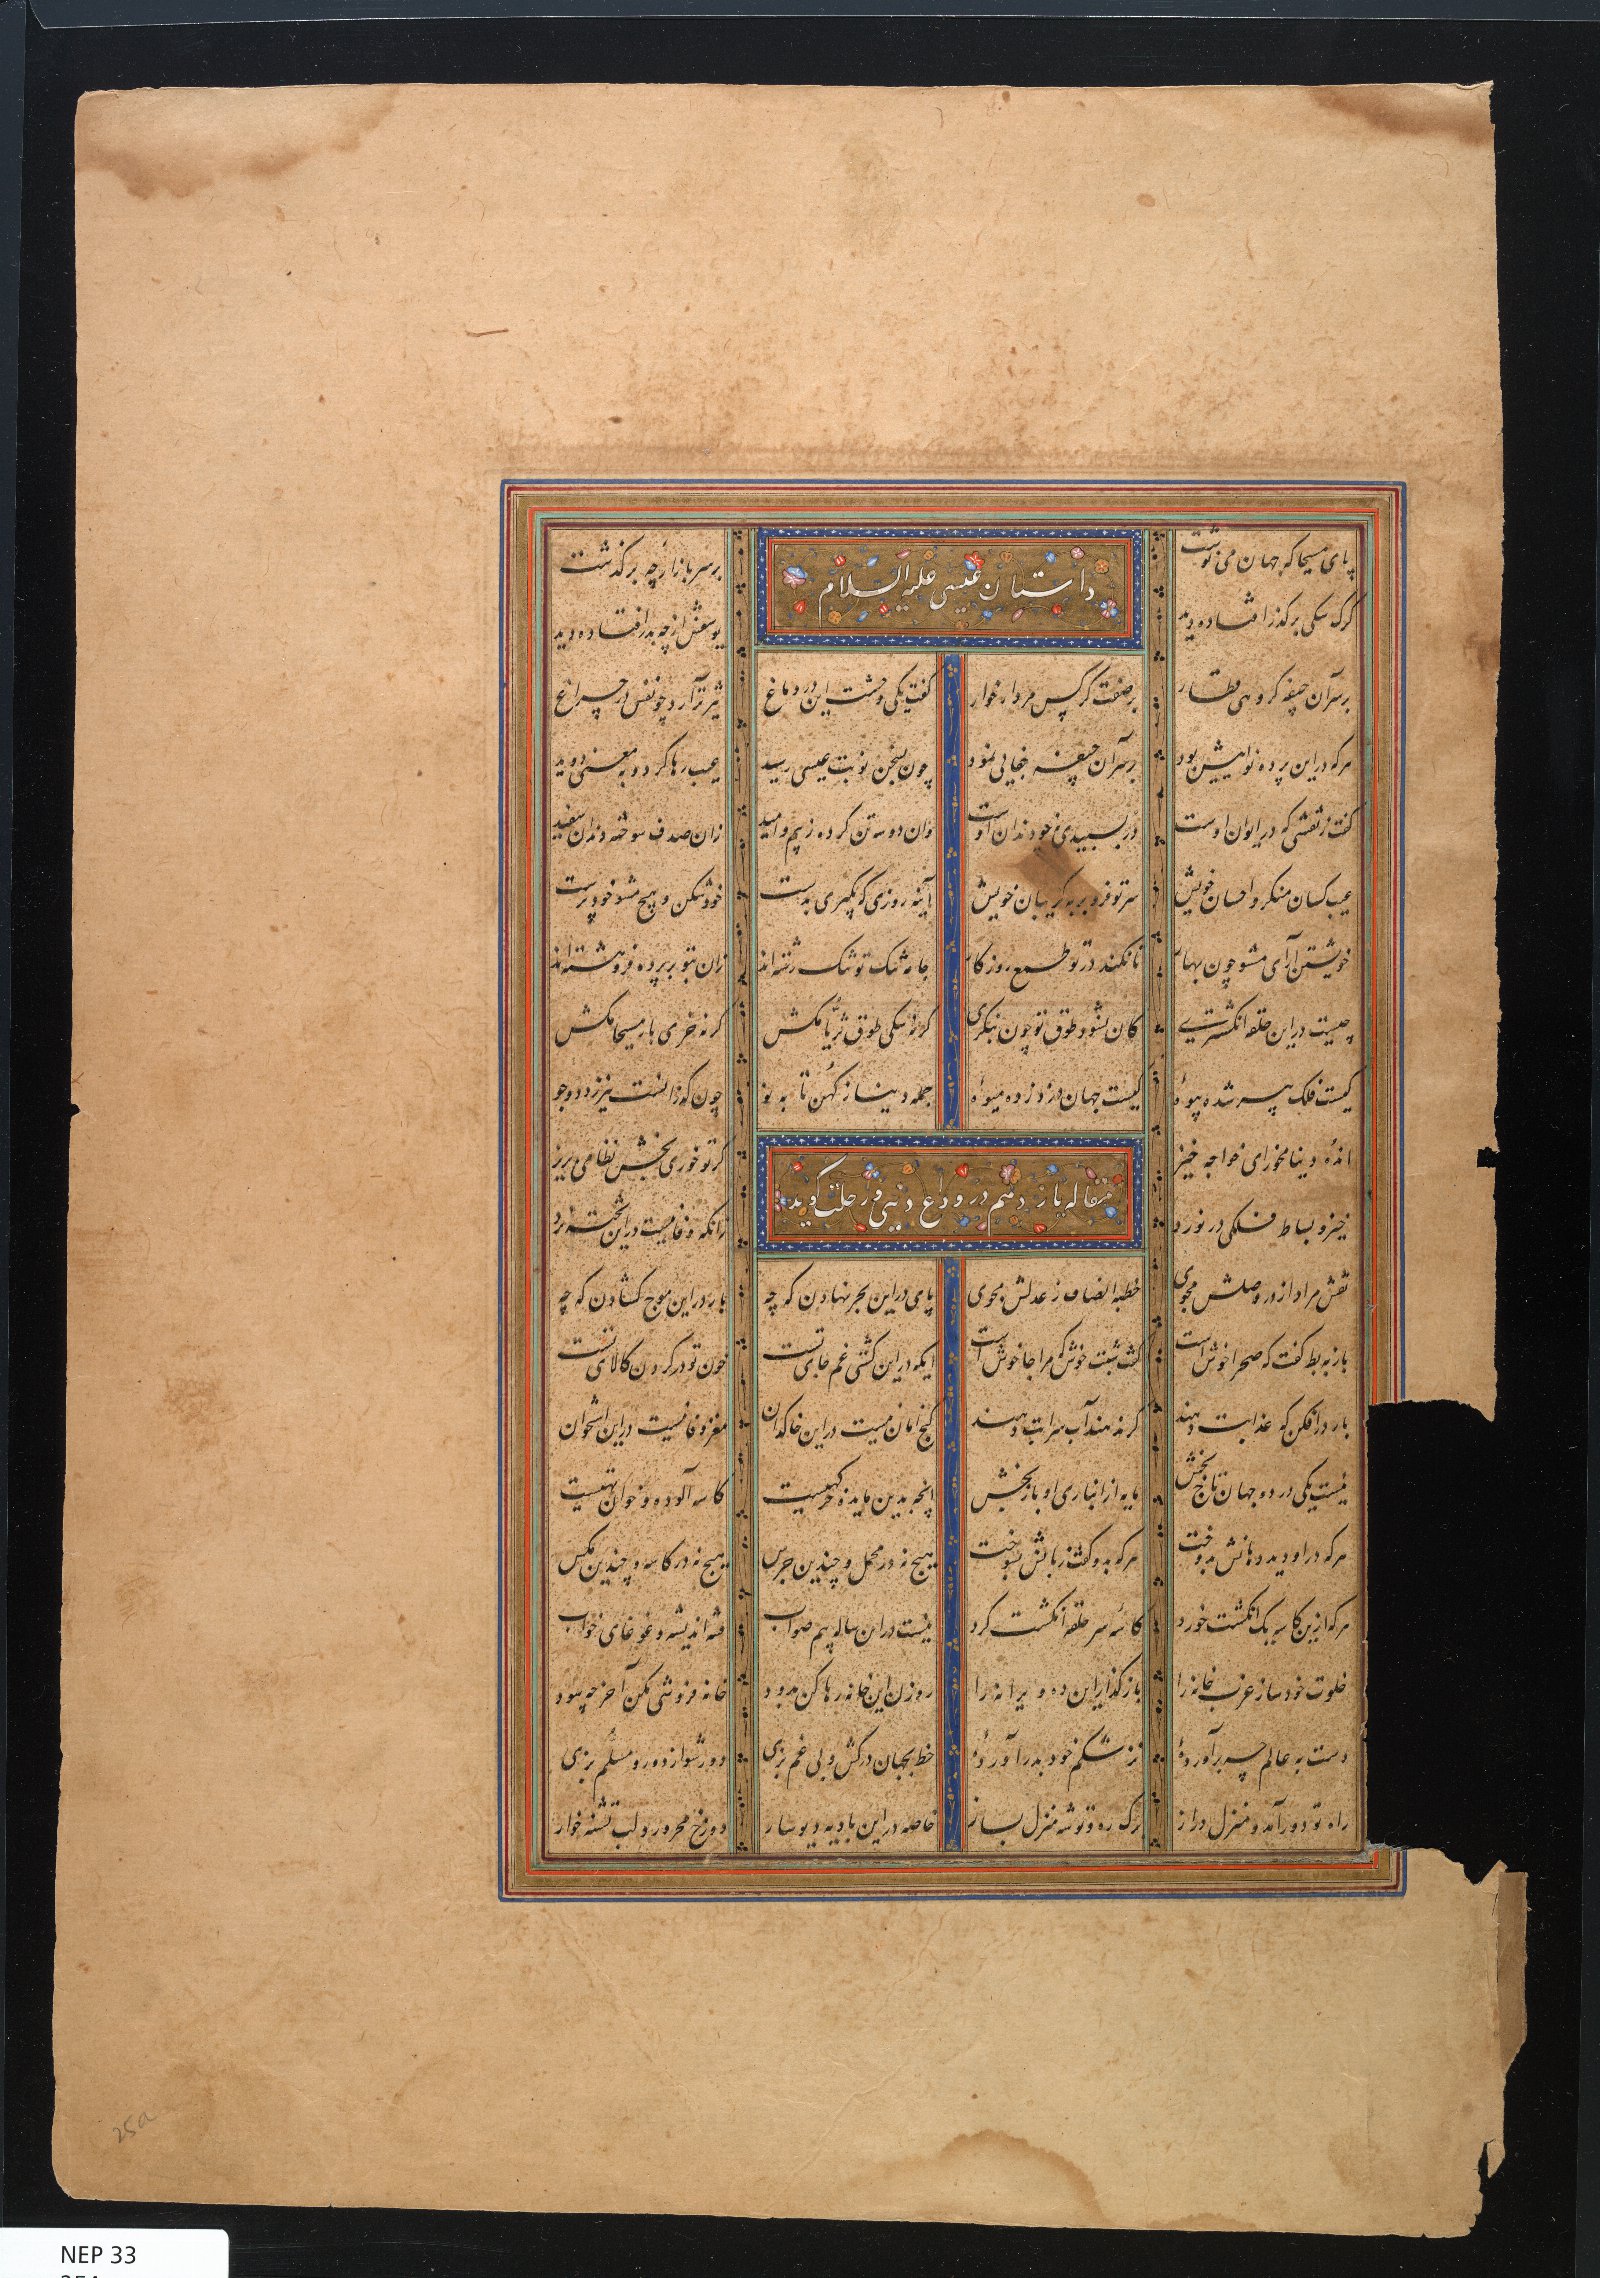 پای مسیحا که جهان می نوشت بر سر بازارچه بر گذشت
داستان عیسی علیه السلام
گرگ سگی بر گذر افتاده دید یوسفش از چه بدر افتاده دید
بر سر آن جیفه گروهی قطار بر صفت کرکس مردار خوار گفت یکی وحشت این در دماغ تیرگی آرد چو نفس در چراغ
هر که در این پرده نوا بیش بود بر سر آن جیفه جفایی نمود چون بسخن نوبت عیسی رسید عیب رها کرد و به معنی دوید
گفت ز نقشی که در ایوان اوست در بسپیدی نه چو دندان اوست وان دو سه تن کرده ز بیم و امید زان صدف سوخته دندان سفید
عیب کسان منگر و احسان خویش سر تو فرو بر به گریبان خویش آینه روزی که بگیری بدست خود شکن و هیچ مشو خود پرست
خویشتن آرای مشو چون بهار تا نکند در تو طمع روزگار جامه تنگ تو تنگ رشته اند زان بتو بر پرده فرو هشته اند
چیست در این حلقه انگشتری کان نشود طوق تو چون بنگری گر نه سگی طوق ثریا مکش گر نه خری بار مسیحا مکش
کیست فلک پیر شده بیوهٔ کیست جهان دزد زده میوهٔ جمله دنیا ز کهن تا به نو چون که نیرزد دو جو
انده دنیا مخور ای خواجه خیز گر تو خوری بخش نظامی بریز
مقاله یازدهم در وداع دنیی و رحلت گوید
خیز و بساط فلکی در نورد زانکه وفا نیست در این تخته نرد
نقش مراد از در وصلش مجوی خطبه انصاف ز عدلش مجوی پای در این بحر نهادن که چه بار در این موج گشادن که چه
باز به بط گفت که صحرا خوش است گفت شبت خوش که مرا جا خوش است ایکه در این کشتی غم جای تست خون تو در گردن کالای تست
بار در افکن که عذابت دهند گر ندهند آب سرابت دهند کنج امان نیست در این خاکدان مغز وفا نیست در این استخوان
نیست یکی در دو جهان تاج بخش مایه از انباری او باز بخش آنچه بدین مایده خرگهیست کاسه آلوده و خوان تهیست
هر که در او دید دهانش بدوخت هر که بدو گفت زبانش بسوخت هیچ نه در محمل و چندین جرس هیچ نه در کاسه و چندین مگس
هر که ازین کاسه یک انگشت خورد کاسهٔ سر حلقه انگشت کرد نیست در بیم صواب فتنه اندیشه و غوغای خواب
خلوت خود ساز عزب خانه را باز گذار این ده ویرانه را روزن این خانه رها کن بدود خانه فروشی بکن آخر چه سود
دست به عالم چه برآوردهٔ نز شکم خود بدر آوردهٔ خط بجهان در کش و بی غم بزی دور شو از دور و مسلم بزی
راه تو دور آمد و منزل دراز برگ ره و توشه منزل بساز خاصه در این بادیه دیوسار دوزخ محرور و لب تشنه خوار
25a
NEP 33